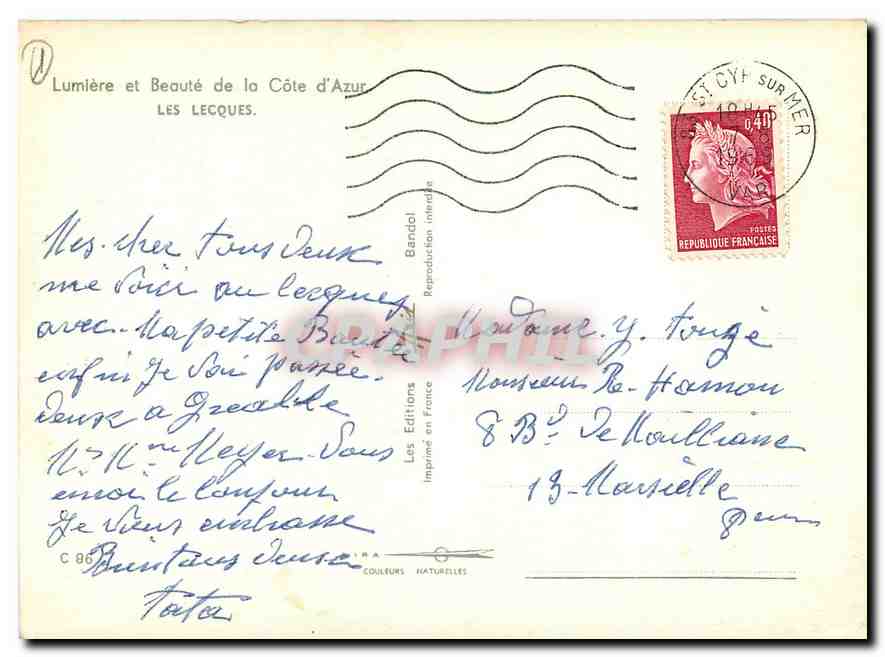 1
Lumière et Beauté de la Côte d'Azur
LES LECQUES.
83 ST CYR SUR MER
18H45
1969
VAR
0,40
POSTES
REPUBLIQUE FRANÇAISE
Mes cher tous deux
me voici au lecques
avec Ma petite
enfin je vois passée
deux a
Mr Mme Meyer Vous
envoi le bonjour
Je vous embrasse
Bien tous deux
tata
C 86
IRA
COULEURS NATURELLES
Les Editions Bandol
Imprimé en France Reproduction interdite
CPAPHIL
Madame Y.
Monsieur R. Hamon
8 Bd De
13 - Marseille